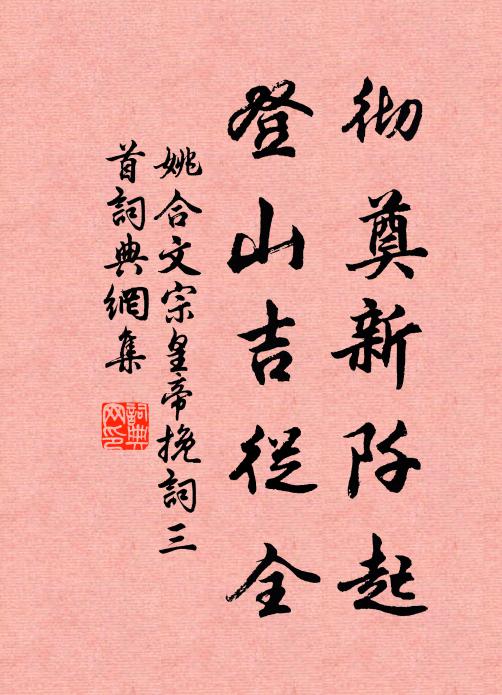 彻奠新阡起
登山吉從全
姚合文宗皇帝挽詞三
首詞典網集
詞典
网印